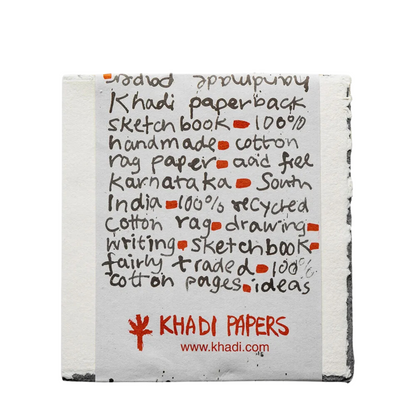 handmade papers
Khadi paperback
sketchbook 100%
handmade cotton
rag paper acid free
Karnataka South
India 100% recycled
cotton rag drawing
writing sketchbook
fairly traded 100%
cotton pages ideas
KHADI PAPERS
www.khadi.com